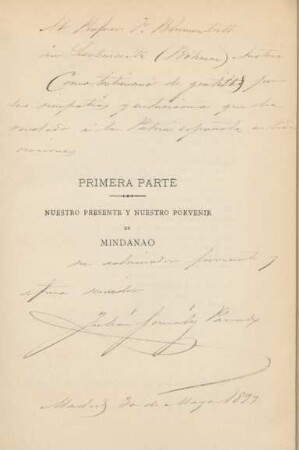 Al Profesor F. Blumentritt
en Leitmeritz (Böhmen) Austria
Como testimonio de gratitud por
las simpatías y entusiasmo que ha
mostrado á la Patria española en
PRIMERA PARTE
NUESTRO PRESENTE Y NUESTRO PORVENIR
EN
MINDANAO
su admirador ferviente y
Julián González Parrado
Madrid 20 de Mayo 1893